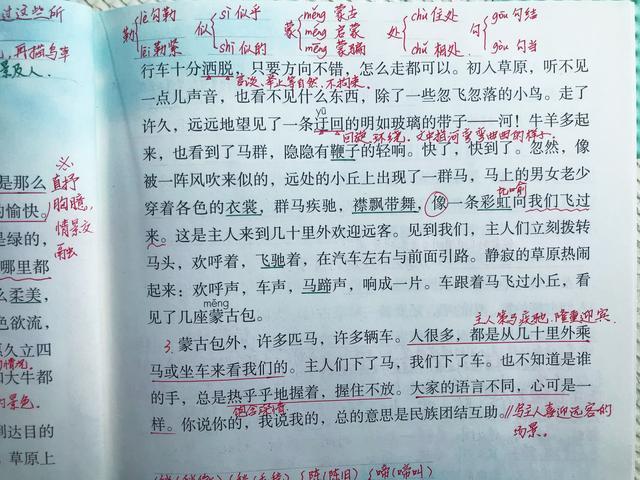 过这些所
再描马车
景及人.
勒{lè 勾勒 lēi 勒紧 似{sì 似乎 shì 似的 蒙{měng 蒙古 méng 启蒙 mēng 蒙骗 处{chǔ 住处 chǔ 相处 句{gōu 句结 gòu 句当
行车十分洒脱，只要方向不错，怎么走都可以。初入草原，听不见
言谈、举止等自然，不拘束。
一点儿声音，也看不见什么东西，除了一些忽飞忽落的小鸟。走了
yū
许久，远远地望见了一条迂回的明如玻璃的带子——河！牛羊多起
回旋、环绕，文中指河弯弯曲曲的样子.
来，也看到了马群，隐隐有鞭子的轻响。快了，快到了。忽然，像
被一阵风吹来似的，远处的小丘上出现了一群马，马上的男女老少
比喻
穿着各色的衣裳，群马疾驰，襟飘带舞，像一条彩虹向我们飞过
来。这是主人来到几十里外欢迎远客。见到我们，主人们立刻拨转
马头，欢呼着，飞驰着，在汽车左右与前面引路。静寂的草原热闹
起来：欢呼声，车声，马蹄声，响成一片。车跟着马飞过小丘，看
měng
见了几座蒙古包。
主人策马疾驰，隆重迎宾
3. 蒙古包外，许多匹马，许多辆车。人很多，都是从几十里外乘
马或坐车来看我们的。主人们下了马，我们下了车。也不知道是谁
的手，总是热乎乎地握着，握住不放。大家的语言不同，心可是一
饱含深情
样。你说你的，我说我的，总的意思是民族团结互助。//与主人喜迎远客的
场景。
陈(陈旧) 啼(啼叫)
是那么
的愉快。
是绿的，
哪里都
么柔美，
色欲流，
久立四
和大牛都
到达目的
，草原上
※
直抒
胸臆，
情景交
融
的情况。
景色.